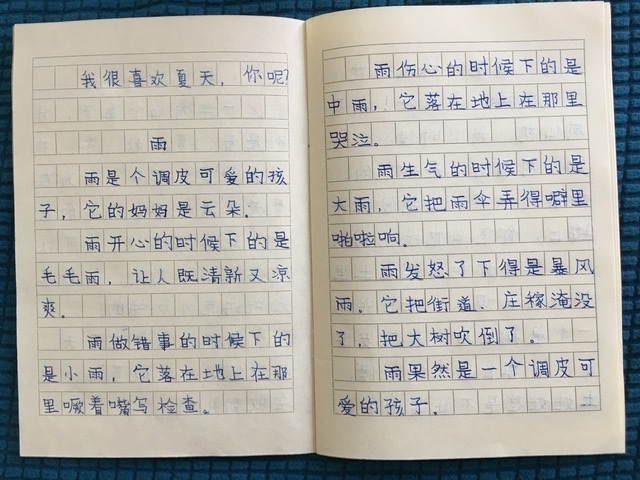 我很喜欢夏天，你呢？
雨
雨是个调皮可爱的孩
子，它的妈妈是云朵。
雨开心的时候下的是
毛毛雨，让人既清新又凉
爽。
雨做错事的时候下的
是小雨，它落在地上在那
里噘着嘴写检查。
雨伤心的时候下的是
中雨，它落在地上在那里
哭泣。
雨生气的时候下的是
大雨，它把雨伞弄得噼里
啪啦响。
雨发怒了下得是暴风
雨。它把街道、庄稼淹没
了，把大树吹倒了。
雨果然是一个调皮可
爱的孩子。